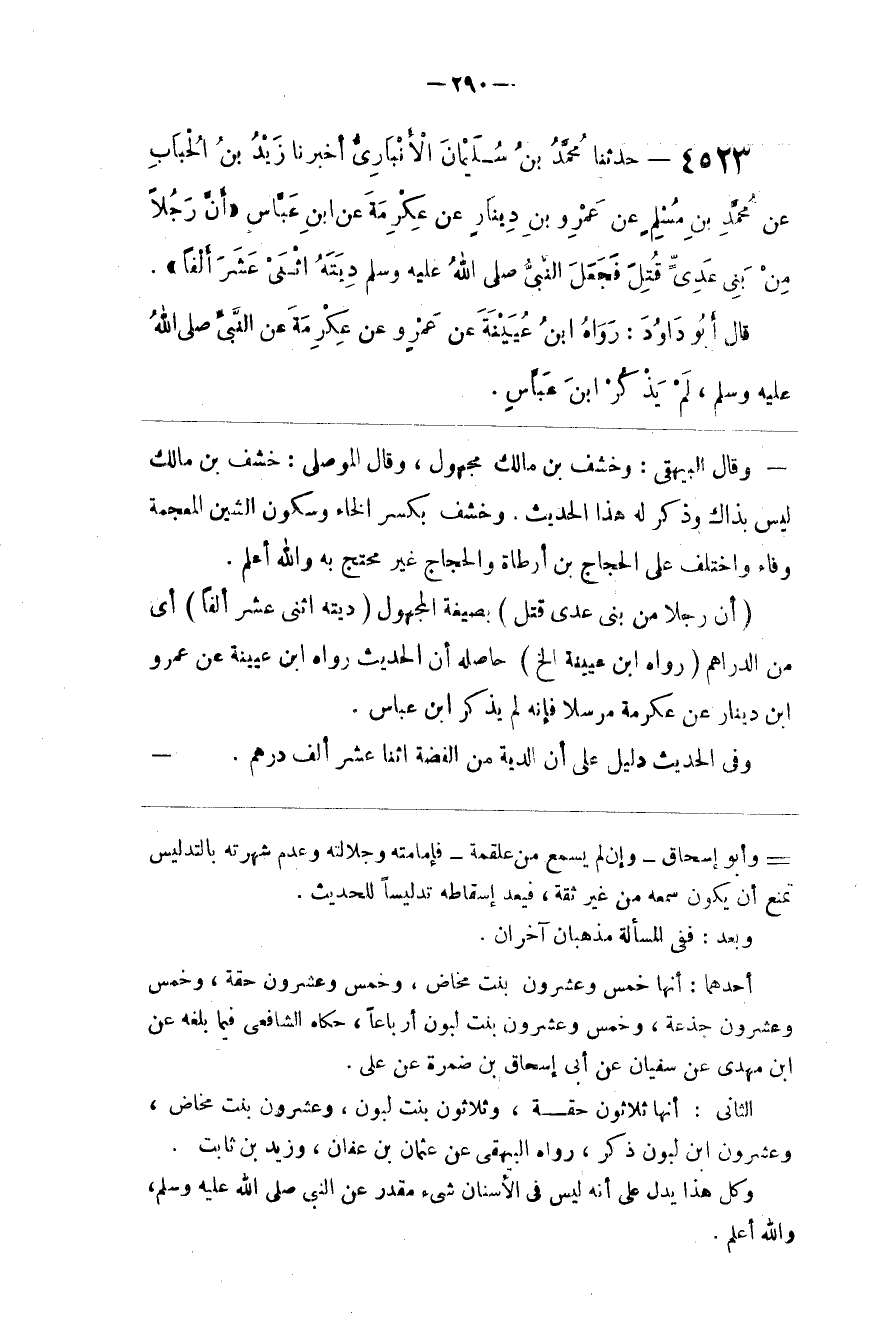 — ٢٩٠ —
٤٥٢٣ — حدثنا مُحمَّدُ بنُ سُلَيْمَانَ الْأَنْبَارِىُّ أخبرنا زَيْدُ بنُ الْحُبَابِ
عن مُحمَّدِ بنِ مُسْلِمٍ عن عَمْرِو بنِ دِينَارٍ عن عِكْرِمَةَ عن ابنِ عَبَّاسٍ «أَنَّ رَجُلاً
مِنْ بَنِى عَدِىٍّ قُتِلَ فَجَعَلَ النَّبىُّ صلى اللهُ عليه وسلم دِيَتَهُ اثْنَىْ عَشَرَ أَلْفاً» .
قال أَبُو دَاوُدَ : رَوَاهُ ابنُ عُيَيْنَةَ عن عَمْرٍو عن عِكْرِمَةَ عن النَّبىِّ صلى اللهُ
عليه وسلم ، لَمْ يَذْكُرْ ابنَ عَبَّاسٍ .
— وقال البيهقى : وخشف بن مالك مجهول ، وقال الموصلى : خشف بن مالك
ليس بذاك وذكر له هذا الحديث . وخشف بكسر الخاء وسكون الشين المعجمة
وفاء واختلف على الحجاج بن أرطاة والحجاج غير محتج به والله أعلم .
( أن رجلا من بنى عدى قتل ) بصيغة المجهول ( ديته اثنى عشر ألفاً ) أى
من الدراهم ( رواه ابن عيينة الخ ) حاصله أن الحديث رواه ابن عيينة عن عمرو
ابن دينار عن عكرمة مرسلا فإنه لم يذكر ابن عباس .
وفى الحديث دليل على أن الدية من الفضة اثنا عشر ألف درهم . —
= وأبو إسحاق ـ وإن لم يسمع من علقمة ـ فإمامته وجلالته وعدم شهرته بالتدليس
تمنع أن يكون سمعه من غير ثقة ، فيعد إسقاطه تدليساً للحديث .
وبعد : ففى المسألة مذهبان آخران .
أحدهما : أنها خمس وعشرون بنت مخاض ، وخمس وعشرون حقة ، وخمس
وعشرون جذعة ، وخمس وعشرون بنت لبون أرباعاً ، حكاه الشافعى فيما بلغه عن
ابن مهدى عن سفيان عن أبى إسحاق بن ضمرة عن على .
الثانى : أنها ثلاثون حقـــة ، وثلاثون بنت لبون ، وعشرون بنت مخاض ،
وعشرون ابن لبون ذكر ، رواه البيهقى عن عثمان بن عفان ، وزيد بن ثابت .
وكل هذا يدل على أنه ليس فى الأسنان شىء مقدر عن النبي صلى الله عليه وسلم،
والله أعلم .